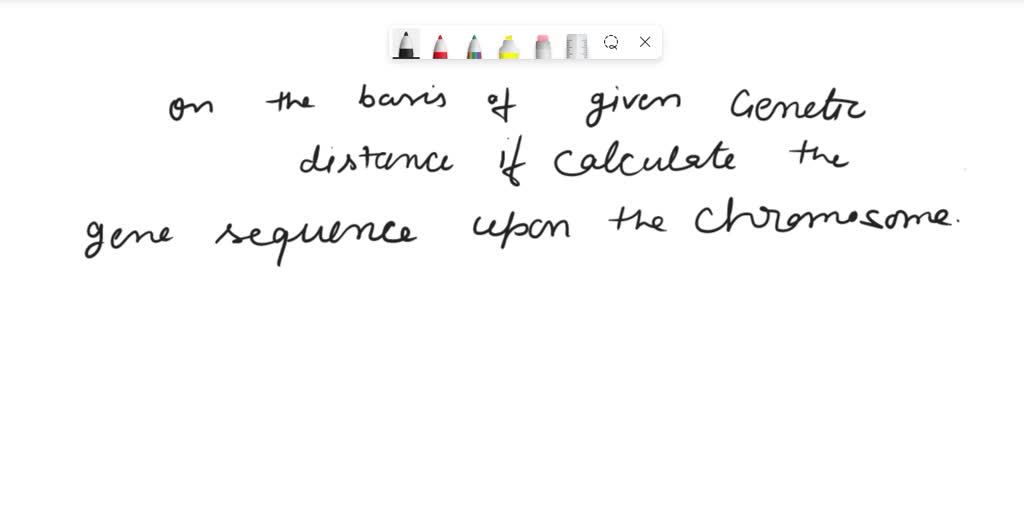 on the basis of given Genetic
distance if calculate the
gene sequence upon the chromosome.